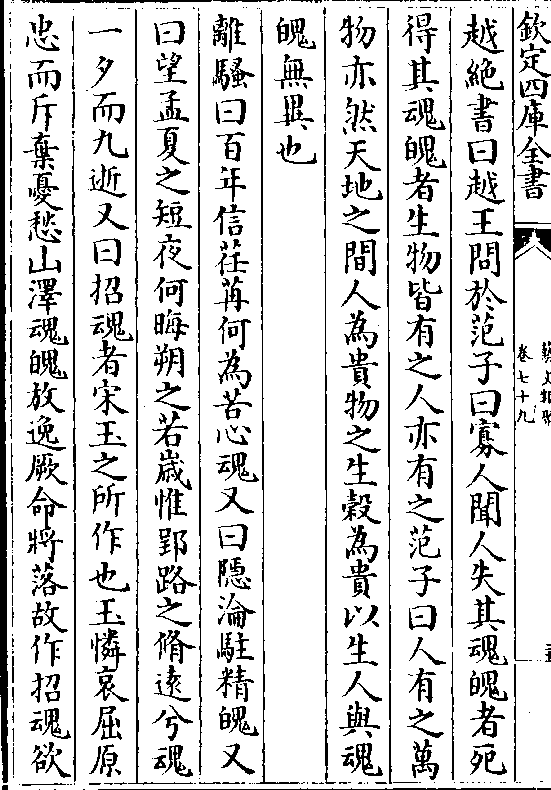 欽定四庫全書
卷七十九
越絶書曰越王問於范子曰寡人聞人失其魂魄者死
得其魂魄者生物皆有之人亦有之范子曰人有之萬
物亦然天地之間人為貴物之生穀為貴以生人與魂
魄無異也
離騷曰百年信荏苒何為苦心魂又曰隱淪駐精魄又
曰望孟夏之短夜何晦朔之若歳惟郢路之脩遠兮魂
一夕而九逝又曰招魂者宋玉之所作也玉憐哀屈原
忠而斥棄憂愁山澤魂魄放逸厥命將落故作招魂欲